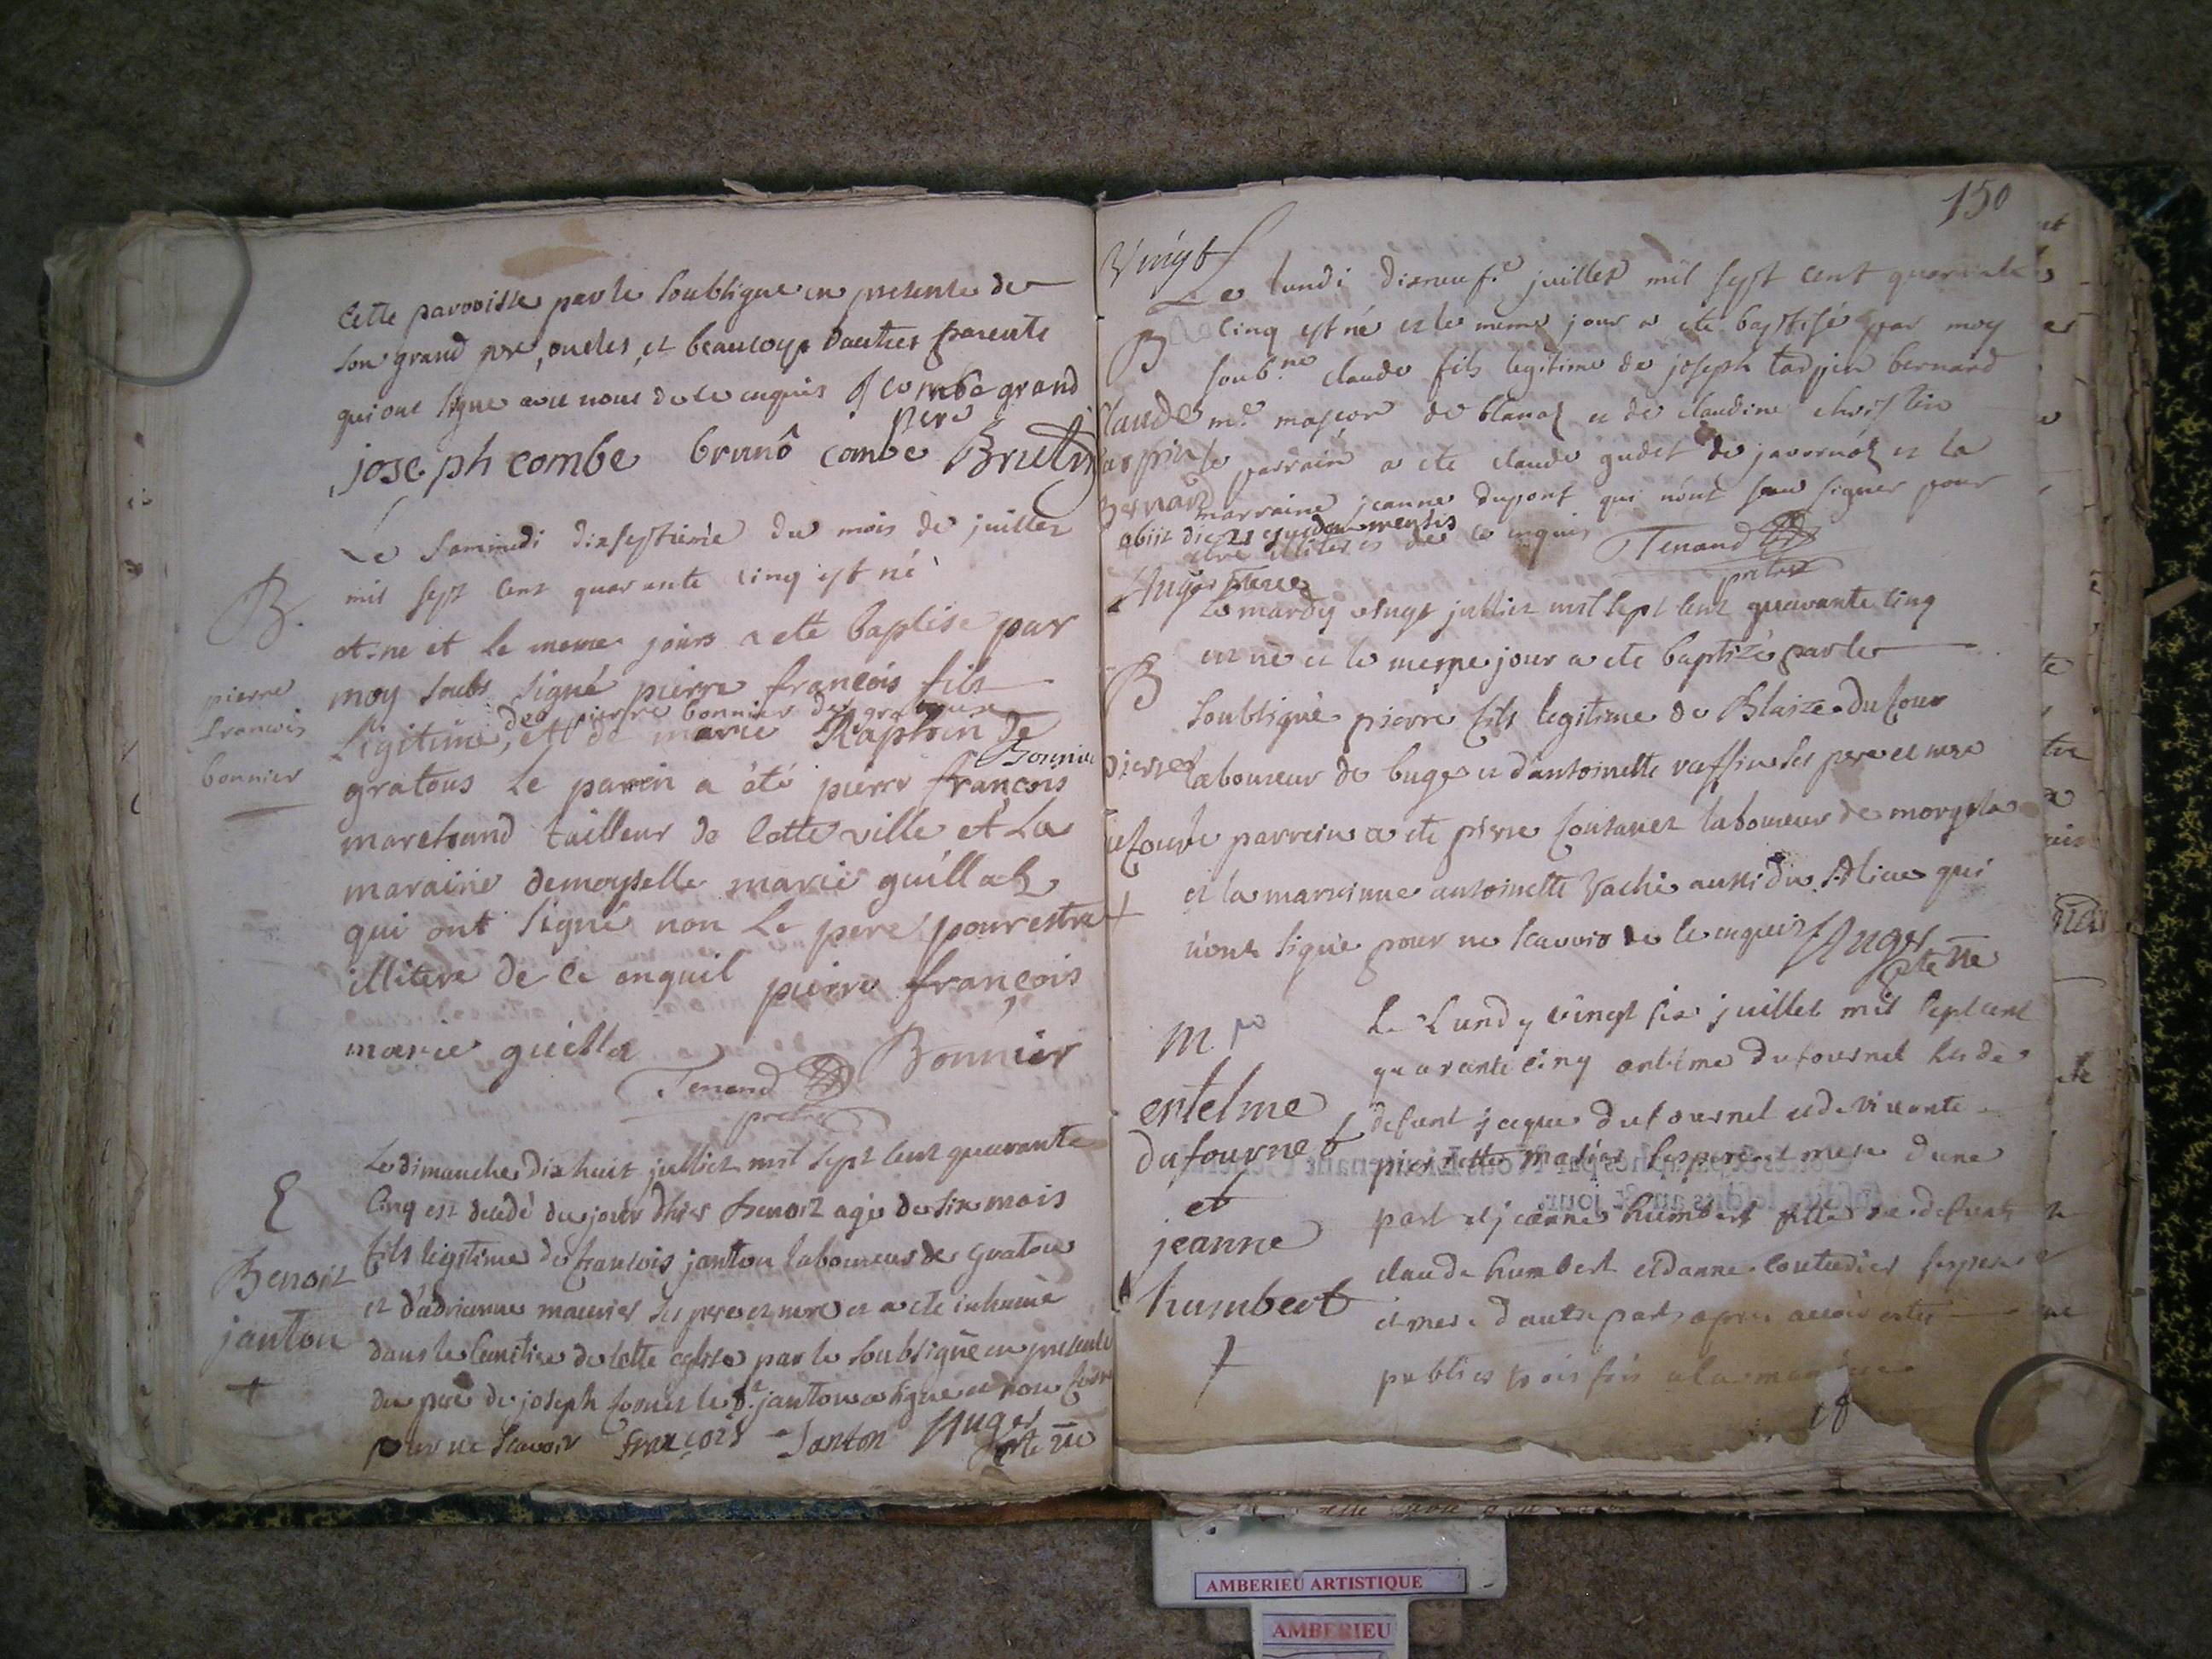 cette parroisse par le soubsigne en presence de
son grand pere, oncles, et beaucoup dautres parents
qui ont signe avec nous de ce enquis J combe grand
pere
joseph combe brunô combe Brulin
Le sammedi dixseptieme du mois de juillet
B.
mil sept cent quarante cinq est né
et ne et le meme jours a ete baptise par
pierre
francois
bonnier
moy soubs signé pierre françois fils
de pierre bonnier de gratoux
Ligitime, et de marie Raphin de
Bonnier
gratous Le parin a été pierre françois
marchand tailleur de cette ville et La
maraine demoyselle marie guillot
qui ont signé non Le pere pour estre
illitere de ce enquil pierre françois
marie guillot Bonnier
Tenand
pretre
Le dimanche dix huit julliet mil sept cent quarante
E
Benoit
janton
+
cinq est decedé du jour dhier Benoit agé de six mois
fils legitime de francois janton laboureur de Gratoux
et d'adrianne maunier ses pere et mere et a ete inhumé
dans le cemitiere de cette eglise par le soubsigné en presence
du pere de joseph le Sr janton a signe et non
pour ne scavoir françois Janton Auger
ptre vic
150
Vingt
Le lundi dixneuf.e juillet mil sept cent quarante
B
cinq est né et le meme jour a ete baptisé par moy
soub.ne claude fils legitime de joseph tarpin bernard
claude
tarpin
Bernard
m.e maçon de blanaz et de claudine christin
le parrain a ete claude gudet de javornoz et la
marraine jeanne dupont qui n'ont sceu signer pour
obiit die 21 ejusdem mensis
etre illiteres de ce enquis Tenand
Auger ptre vic
pretre
Le mardy vingt julliet mil sept cent quarante cinq
B
est né et le mesme jour a ete baptizé par le
soubsigné pierre fils legitime de Blaize dufour
pierre
dufour
+
laboureur de buges et d'antoinette ruffin ses pere et mere
le parrain a ete pierre laboureur de morgela
et la marrainne antoinette Vaché aussi du dit lieu qui
n'ont signé pour ne scavoir de ce enquis Auger
ptre vic
m.
entelme
dufournet
et
jeanne
humbert
+
Le Lundy vingt six juillet mil sept cent
quarante cinq antelme dufournel fils de
defunt jacque dufournel et de vivante
pierrette ses pere et mere d'une
part et jeanne humbert fille de defunt
claude humbert et d'anne couturier ses pere
et mere d'autre part apres avoir estés
publies trois fois a la maniere
AMBERIEU ARTISTIQUE
AMBERIEU